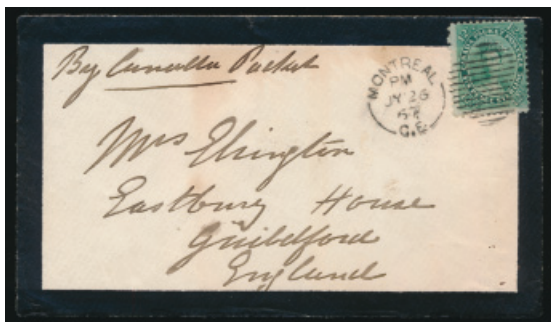 By Canada Packet
MONTREAL
PM
JY 26
67
C.E
Mrs Elrington
Eastbury House
Guildford
England